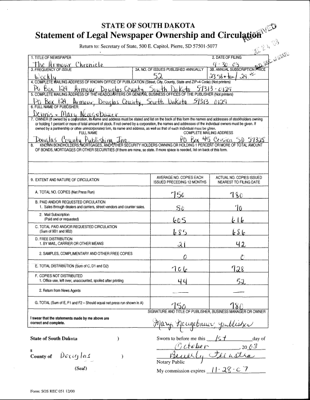 STATE OF SOUTH DAKOTA
Statement of Legal Newspaper Ownership and Circulation
RECEIVED
Return to: Secretary of State, 500 E. Capitol, Pierre, SD 57501-5077
1. TITLE OF NEWSPAPER
2. DATE OF FILING
The Armour Chronicle
3. FREQUENCY OF ISSUE
3A. NO. OF ISSUES PUBLISHED ANNUALLY
3B. ANNUAL SUBSCRIPTION
Weekly
52
4. COMPLETE MAILING ADDRESS OF KNOWN OFFICE OF PUBLICATION (Street, City, County, State and ZIP+4 Code) (Not printers)
Po Box 129 Armour, Douglas County, South Dakota 57313-0129
5. COMPLETE MAILING ADDRESS OF THE HEADQUARTERS OF GENERAL BUSINESS OFFICES OF THE PUBLISHER (Not printer)
Po Box 129 Armour, Douglas County, South Dakota 57313-0129
6. FULL NAME OF PUBLISHER
7. OWNER (If owned by a corporation, its name and address must be stated and on the back of this form the names and addresses of stockholders owning
or holding 1 percent or more of total amount of stock. If not owned by a corporation, the names and addresses of the individual owners must be given. If
owned by a partnership or other unincorporated firm, its name and address, as well as that of each individual must be given.
FULL NAME
COMPLETE MAILING ADDRESS
Douglas County Publishing Inc.
8. KNOWN BONDHOLDERS, MORTGAGEES, AND OTHER SECURITY HOLDERS OWNING OR HOLDING 1 PERCENT OR MORE OF TOTAL AMOUNT
OF BONDS, MORTGAGES OR OTHER SECURITIES (If there are none, so state. If more space is needed, list on back of this form.
9. EXTENT AND NATURE OF CIRCULATION
AVERAGE NO. COPIES EACH ISSUED PRECEDING 12 MONTHS
ACTUAL NO. COPIES ISSUED NEAREST TO FILING DATE
A. TOTAL NO. COPIES (Net Press Run)
750
780
B. PAID AND/OR REQUESTED CIRCULATION
1. Sales through dealers and carriers, street vendors and counter sales.
70
2. Mail Subscription
(Paid and or requested)
605
616
C. TOTAL PAID AND/OR REQUESTED CIRCULATION
(Sum of 9B1 and 9B2)
685
686
D. FREE DISTRIBUTION
1. BY MAIL, CARRIER OR OTHER MEANS
21
42
2. SAMPLES, COMPLIMENTARY AND OTHER FREE COPIES
0
0
E. TOTAL DISTRIBUTION (Sum of C, D1 and D2)
706
728
F. COPIES NOT DISTRIBUTED
1. Office use, left over, unaccounted, spoiled after printing
44
52
2. Return from News Agents
G. TOTAL (Sum of E, F1 and F2 - Should equal net press run shown in A)
750
780
I swear that the statements made by me above are
correct and complete.
SIGNATURE AND TITLE OF PUBLISHER, BUSINESS MANAGER OR OWNER
State of South Dakota )
County of Douglas )
(Seal)
Sworn to before me this 1st day of
October 2003
Notary Public
My commission expires 11-28-07
Form: SOS REC 051 12/00